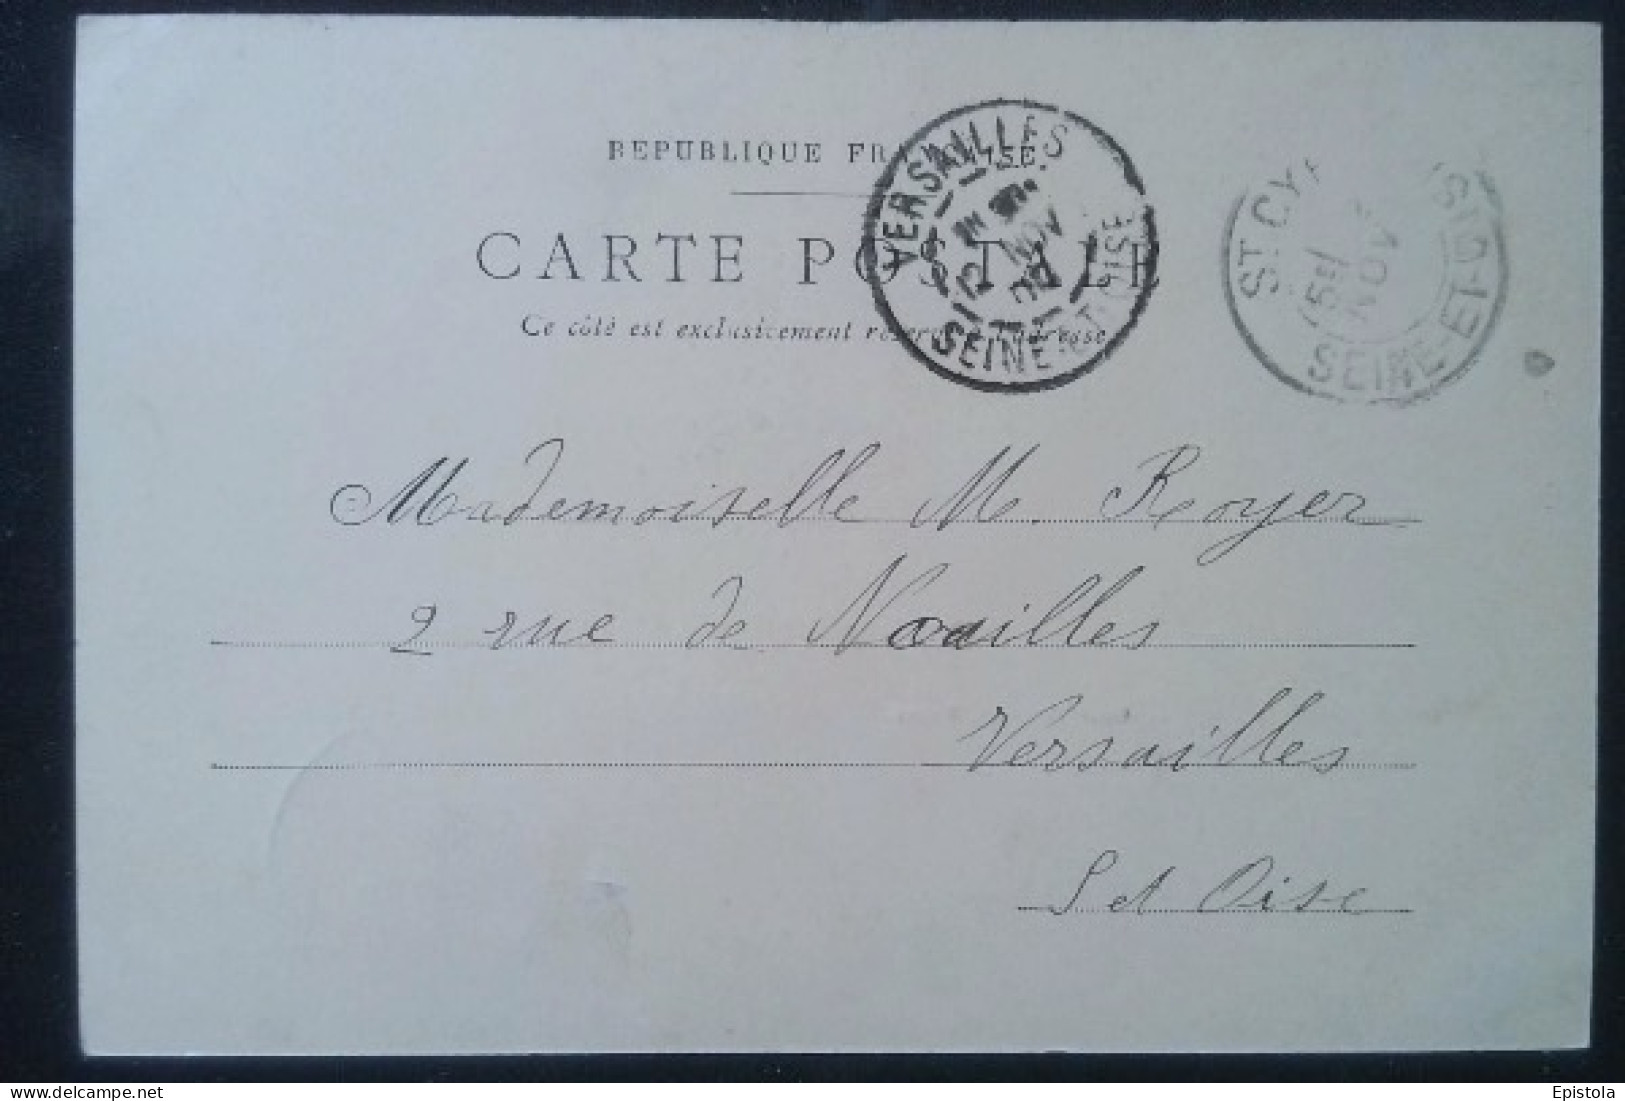 REPUBLIQUE FRANÇAISE
CARTE POSTALE
Ce côté est exclusivement réservé à l'adresse
VERSAILLES
12
NOV
SEINE-ET-OISE
ST CYR
NOV
SEINE-ET-OISE
Mademoiselle M. Royer
2 rue de Noailles
Versailles
S et Oise
delcampe.net
Epistola